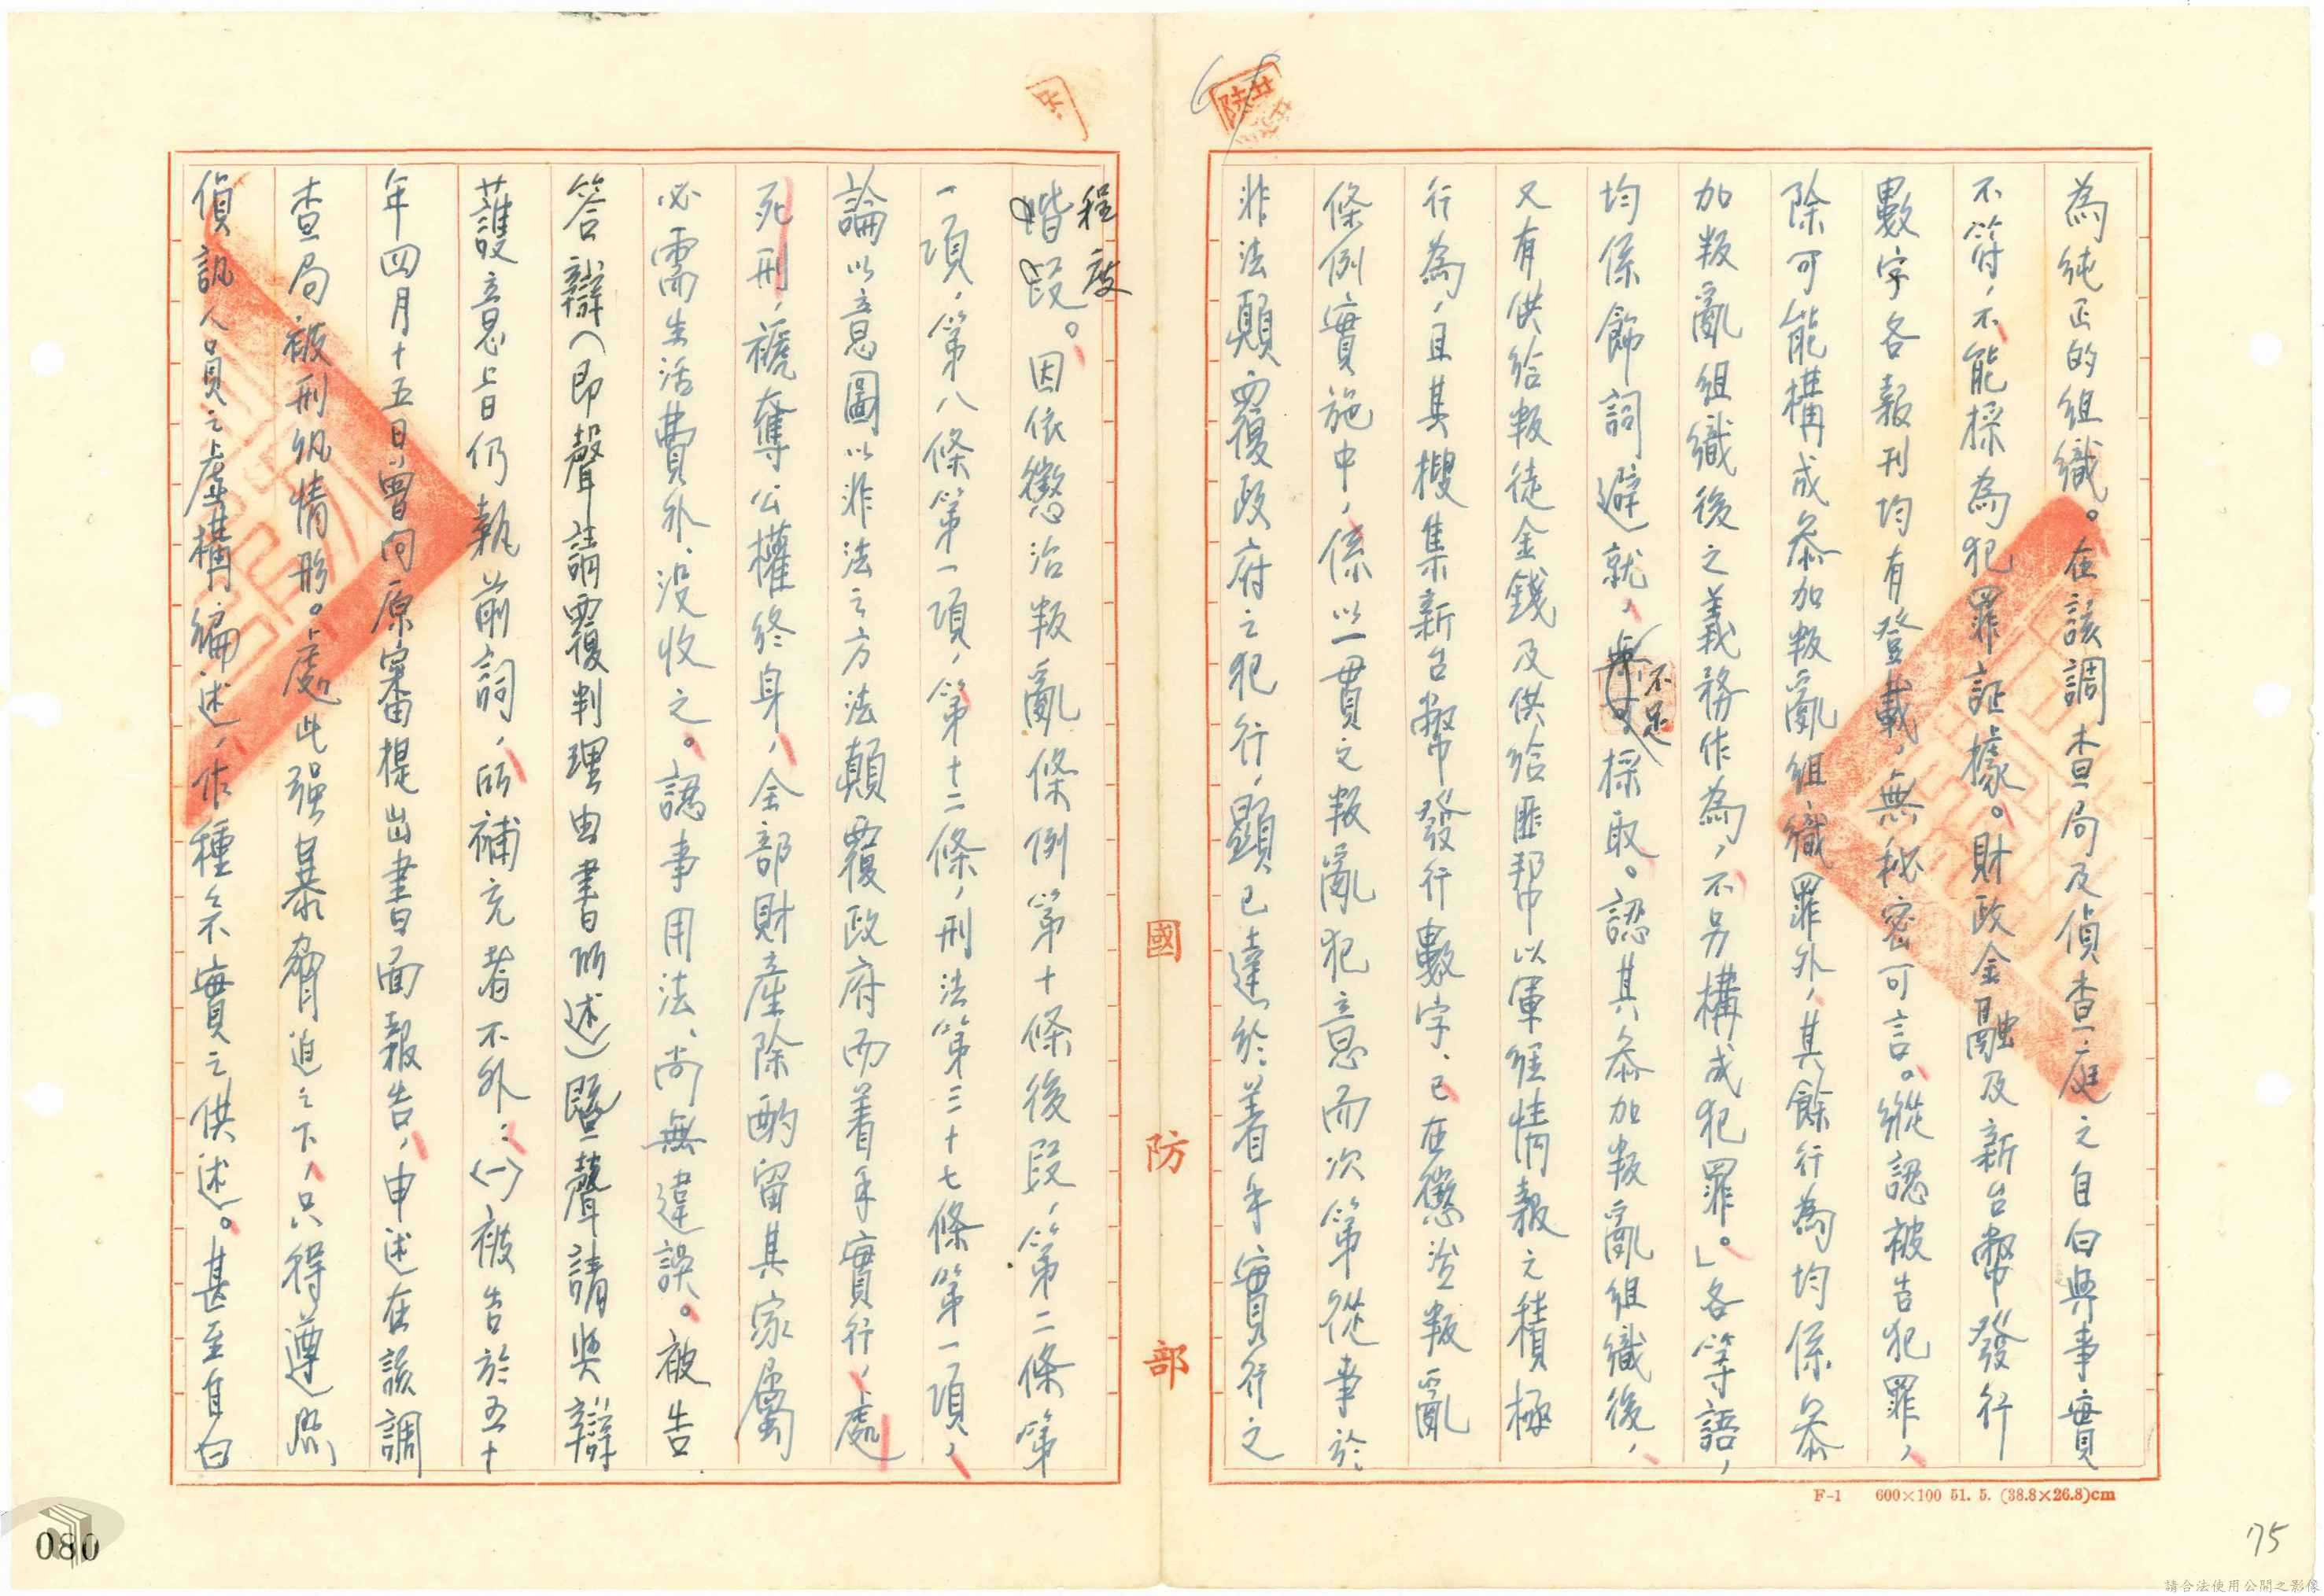 為純正的組織。在該調查局及偵查庭之自白與事實
不符,不能採為犯罪証據。財政金融及新台幣發行
數字各報刊均有登載,無秘密可言。縱認被告犯罪,
除可能構成叅加叛亂組織罪外,其餘行為均係叅
加叛亂組織後之義務作為,不另構成犯罪。」各等語,
均係飾詞避就,不足採取。認其叅加叛亂組織後,
又有供給叛徒金錢及供給匪幫以軍經情報之積極
行為,且其搜集新台幣發行數字、已在懲治叛亂
條例實施中,係以一貫之叛亂犯意而次第從事於
非法顛覆政府之犯行,顯已達於着手實行之
程度
階段。因依懲治叛亂條例第十條後段,第二條第
一項,第八條第一項,第十二條,刑法第三十七條第一項,
論以意圖以非法之方法顛覆政府而着手實行,處
死刑,褫奪公權終身,全部財產除酌留其家屬
必需生活費外、沒收之。認事用法、尚無違誤。被告
答辯(即聲請覆判理由書所述)暨聲請與辯
護意旨仍執前詞,所補充者不外:(一)被告於五十
年四月十五日,曾向原審提出書面報告,申述在該調
查局被刑訊情形。處此强暴脅迫之下,只得遵照
偵訊人員之虛構編述,作種種不實之供述。甚至自白
國防部
F-1 600×100 51. 5. (38.8×26.8)cm
75
080
請合法使用公開之影像